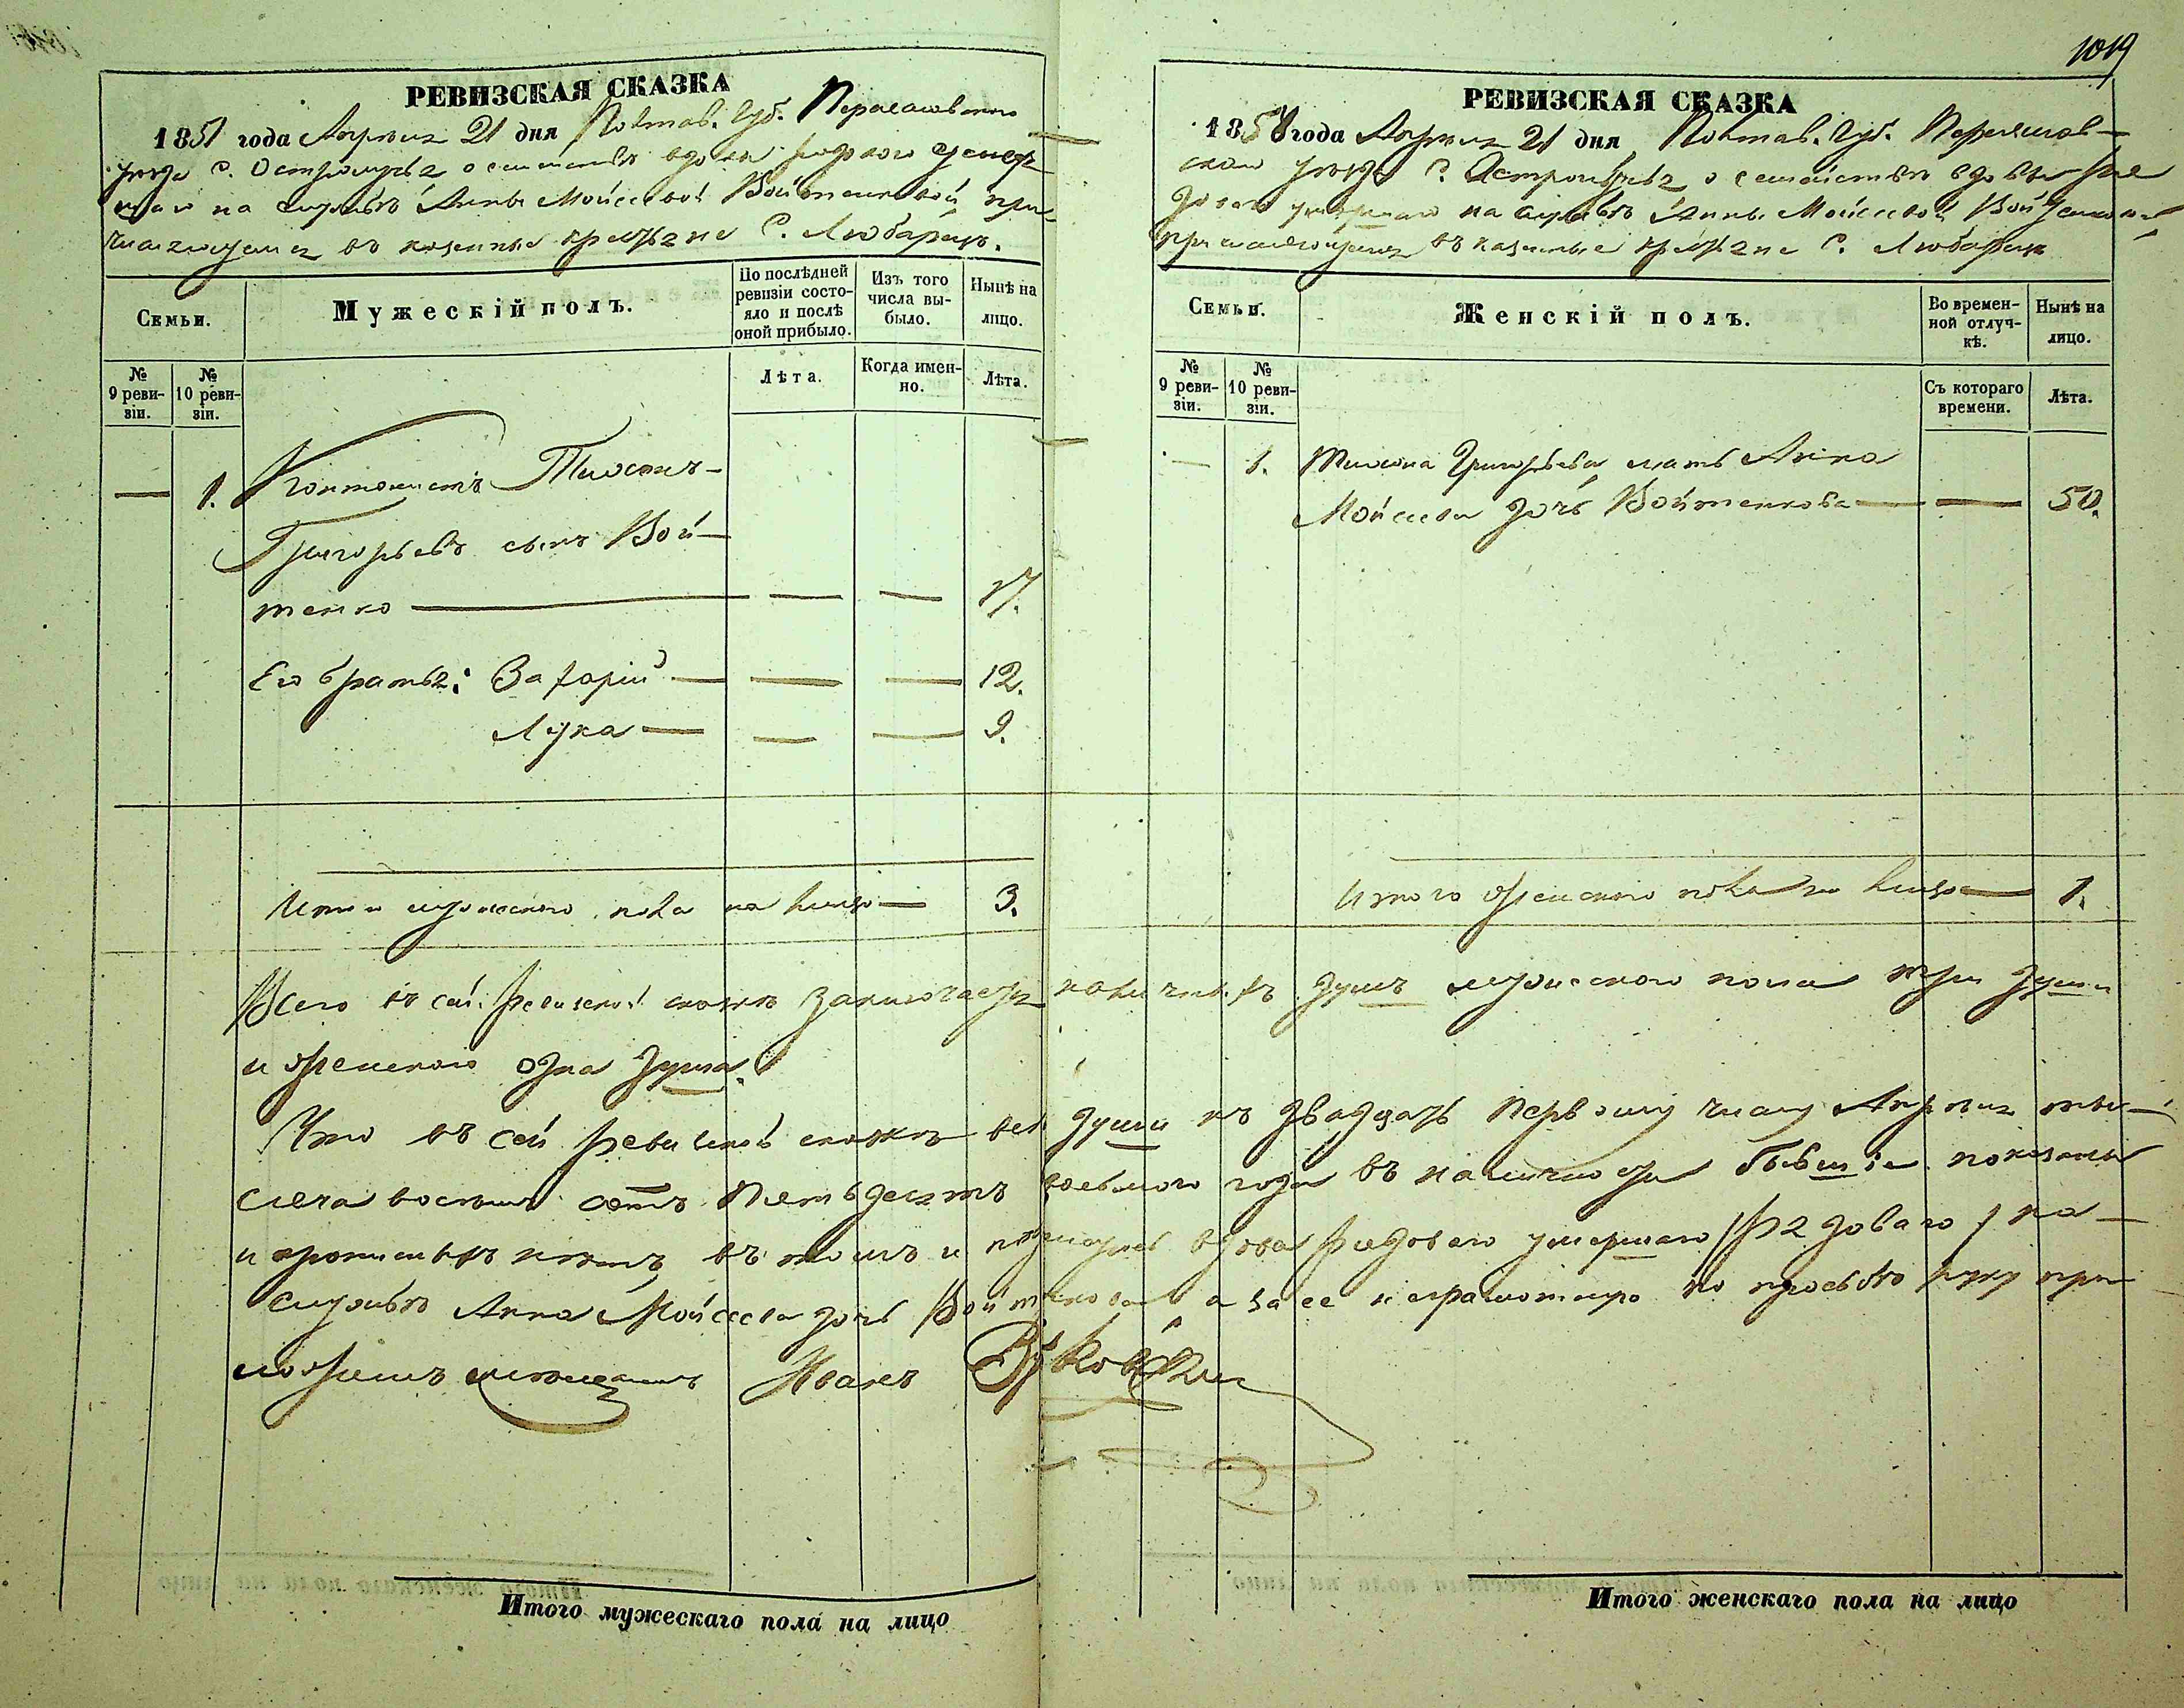 1019
РЕВИЗСКАЯ СКАЗКА
1851 года Апреля 21 дня Полтав. Губ. Переяславскаго
уезда С. о семействе вдовы рядового умер
шаго на службе Анны Мойсеевой Войтенковой при
числяющемся въ казенные крестьяне С. Любарецъ.
Семьи.
Мужескій полъ.
По послѣдней ревизіи состояло и послѣ оной прибыло.
Изъ того числа выбыло.
Нынѣ на лицо.
№ 9 ревизіи.
№ 10 ревизіи.
Лѣта.
Когда именно.
Лѣта.
— 1. Кантонистъ
Григорьевъ сынъ Вой-
тенко — — — 17.
Его братья: Захарій — — — 12.
Лука — — — 9.
Итого мужескаго пола на лицо — 3.
РЕВИЗСКАЯ СКАЗКА
1858 года Апреля 21 дня Полтав. Губ. Переяслав-
скаго уезда С. о семействе вдовы ря
доваго умершаго на службѣ Анны Мойсеевой Войтенковой
причисляющемся въ казенные крестьяне С. Любарецъ
Семьи.
Женскій полъ.
Во временной отлучкѣ.
Нынѣ на лицо.
№ 9 ревизіи.
№ 10 ревизіи.
Съ котораго времени.
Лѣта.
— 1. Григорьева мать Анна
Мойсеева дочь Войтенкова — — 50.
Итого женскаго пола на лицо — 1.
Всего въ сей ревизской сказкѣ заключается наличныхъ душъ мужескаго пола три души
и женскаго одна душа.
Что въ сей ревизской сказкѣ всѣ души къ двадцать первому числу Апреля ты-
сяча восемь сотъ пятьдесятъ восьмого года въ наличности бывшія показаны
и прописныхъ нѣтъ, въ томъ и вдова рядоваго умершаго рядоваго на
службѣ Анна Мойсеева дочь Войтенкова а за ее неграмотную по просьбѣ руку при
ложилъ Иванъ
Итого мужескаго пола на лицо
Итого женскаго пола на лицо